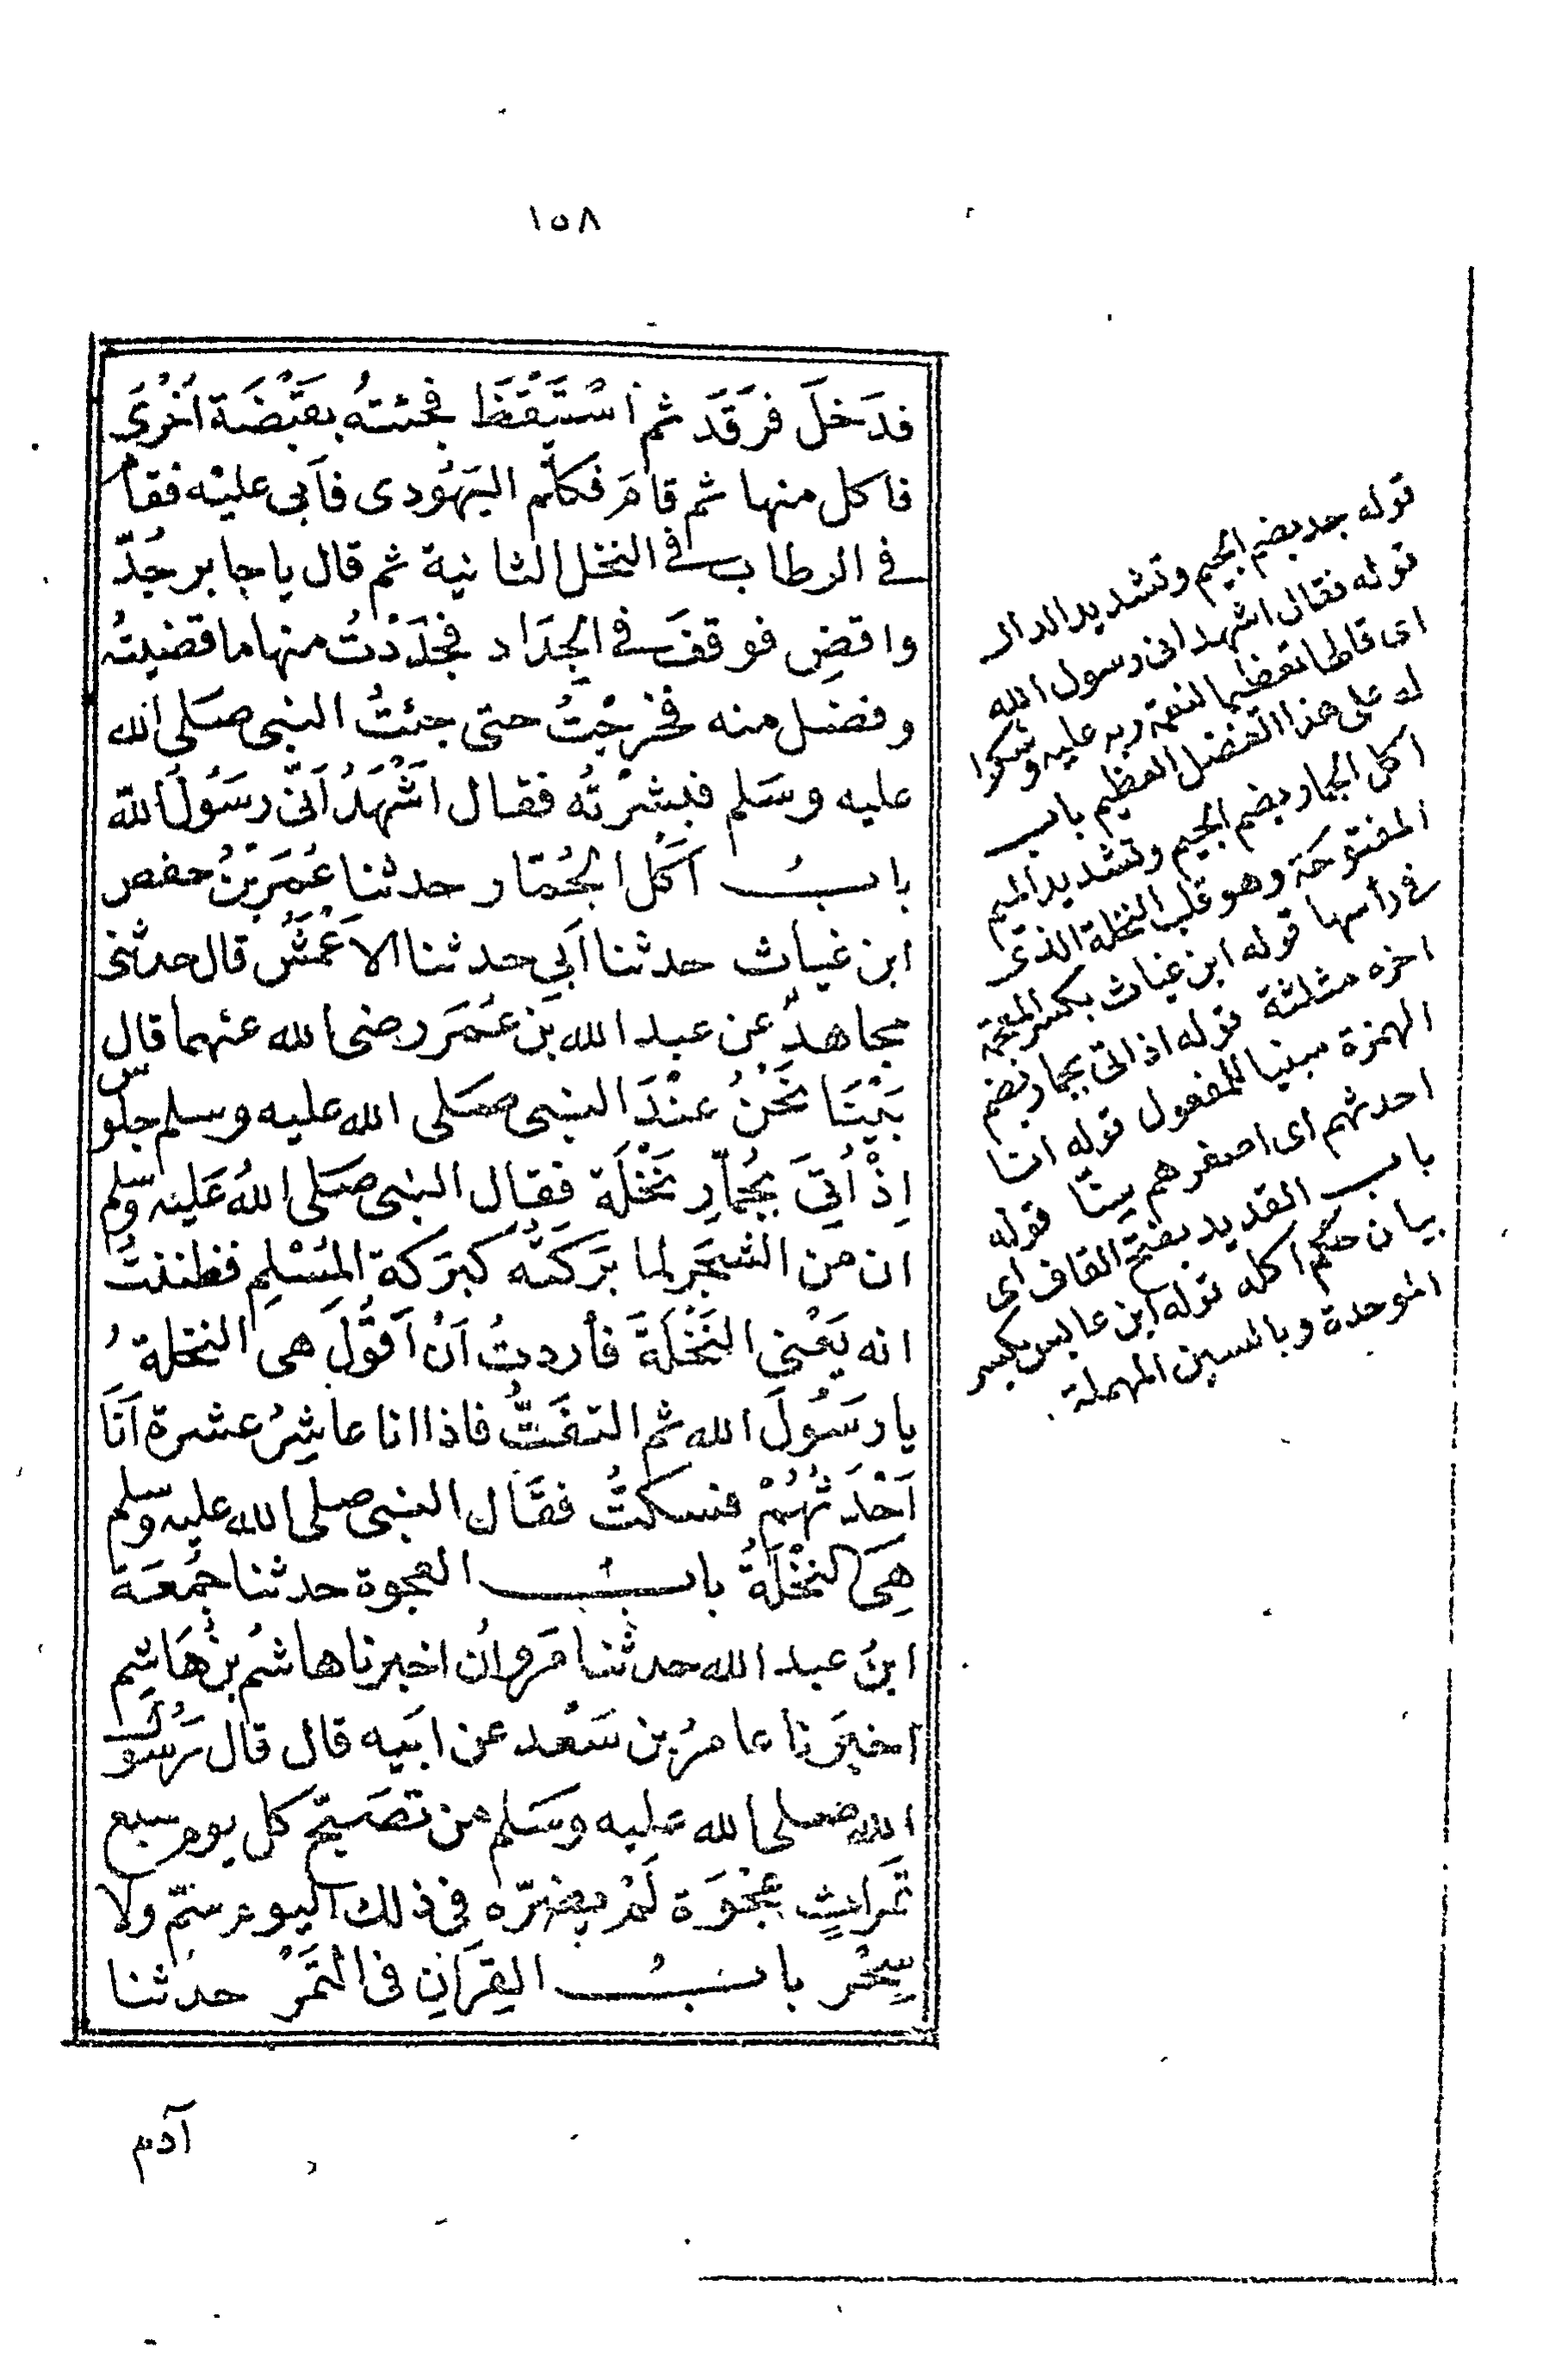 ١٥٨
فدَخلَ فرَقَدَ ثم اسْتَيْقَظَ فجئتهُ بقَبْضَة اُخْرَى
فاكل منها ثم قامَ فكلّم اليَهُودى فاَبى عليْه فقام
فى الرطاب فى النخل الثانية ثم قال يا جابر جُدّ
واقضِ فوقفَ فى الجِدَاد فجَدَدْتُ منها ما قضيتهُ
وفضل منه فخرجْتُ حتى جئتُ النبى صَلى الله
عليه وسَلم فبشرْتُه فقال اَشْهَدُ اَنّى رسَوُلُ اللّه
بابُ اَكْل الجُمّار حدثنا عُمَرُ بْنُ حفص
ابن غياث حدثنا اَبى حدثنا الاَعْمَشُ قال حدثنى
مجاهدٌ عن عبد الله بْن عُمَر رضى الله عنهما قال
بَيْنَا نَحْنُ عنْدَ النبى صَلى الله عليه وسلم جلوس
اِذْ اُتِىَ بجُمّارِ نَخْلَة فقال النبى صَلى اللهُ عَليْه وسلم
ان من الشجَر لما بَرَكتُه كبَرَكة المُسْلِم فظننتُ
انه يَعْنى النَخْلَةَ فأردتُ اَنْ اَقُولَ هى النخلةُ
يا رسَوُلَ الله ثم التفَتُّ فاذا انا عاشِرُ عشرة اَنَا
اَحْدَثُهُمْ فسكتُّ فقَال النبى صلى الله عليه وسلم
هِىَ النخْلَةُ بابُ العجوة حدثنا جُمعَة
ابنُ عبد الله حدثنا مَروانُ اخبرنا هاشمُ بْنُ هَاشِم
اخبرَنا عامرُ بن سَعْد عن ابيَه قال قال رَسُولُ
الله صَلى الله عَليه وسَلم من تصَبّح كل يوم سبع
تَمراتٍ عجْوَة لَمْ يضرّه فى ذلك اليوم سَمّ ولا
سِحْر بابُ القِرَانِ فى التَمْرْ حدثنا
آدم
قوله جد بضم الجيم وتشديد الدال
قوله فقال اشهد انى رسول الله
اى قاطعا تعظيما لنعمة ربه عليه وشكرا
له على هذا الفضل العظيم باب
اكل الجمار بضم الجيم وتشديد الميم
المفتوحة وهو قلب النخلة الذى
فى رأسها قوله ابن غياث بكسر المعجمة
اخره مثلثة قوله اذ اتى بجمار بضم
الهمزة مبنيا للمفعول قوله انا
احدثهم اى اصغرهم سنّا قوله
باب القديد بفتح القاف اى
بيان حكم اكله قوله ابن عابس بكسر
الموحدة وبالسين المهملة .